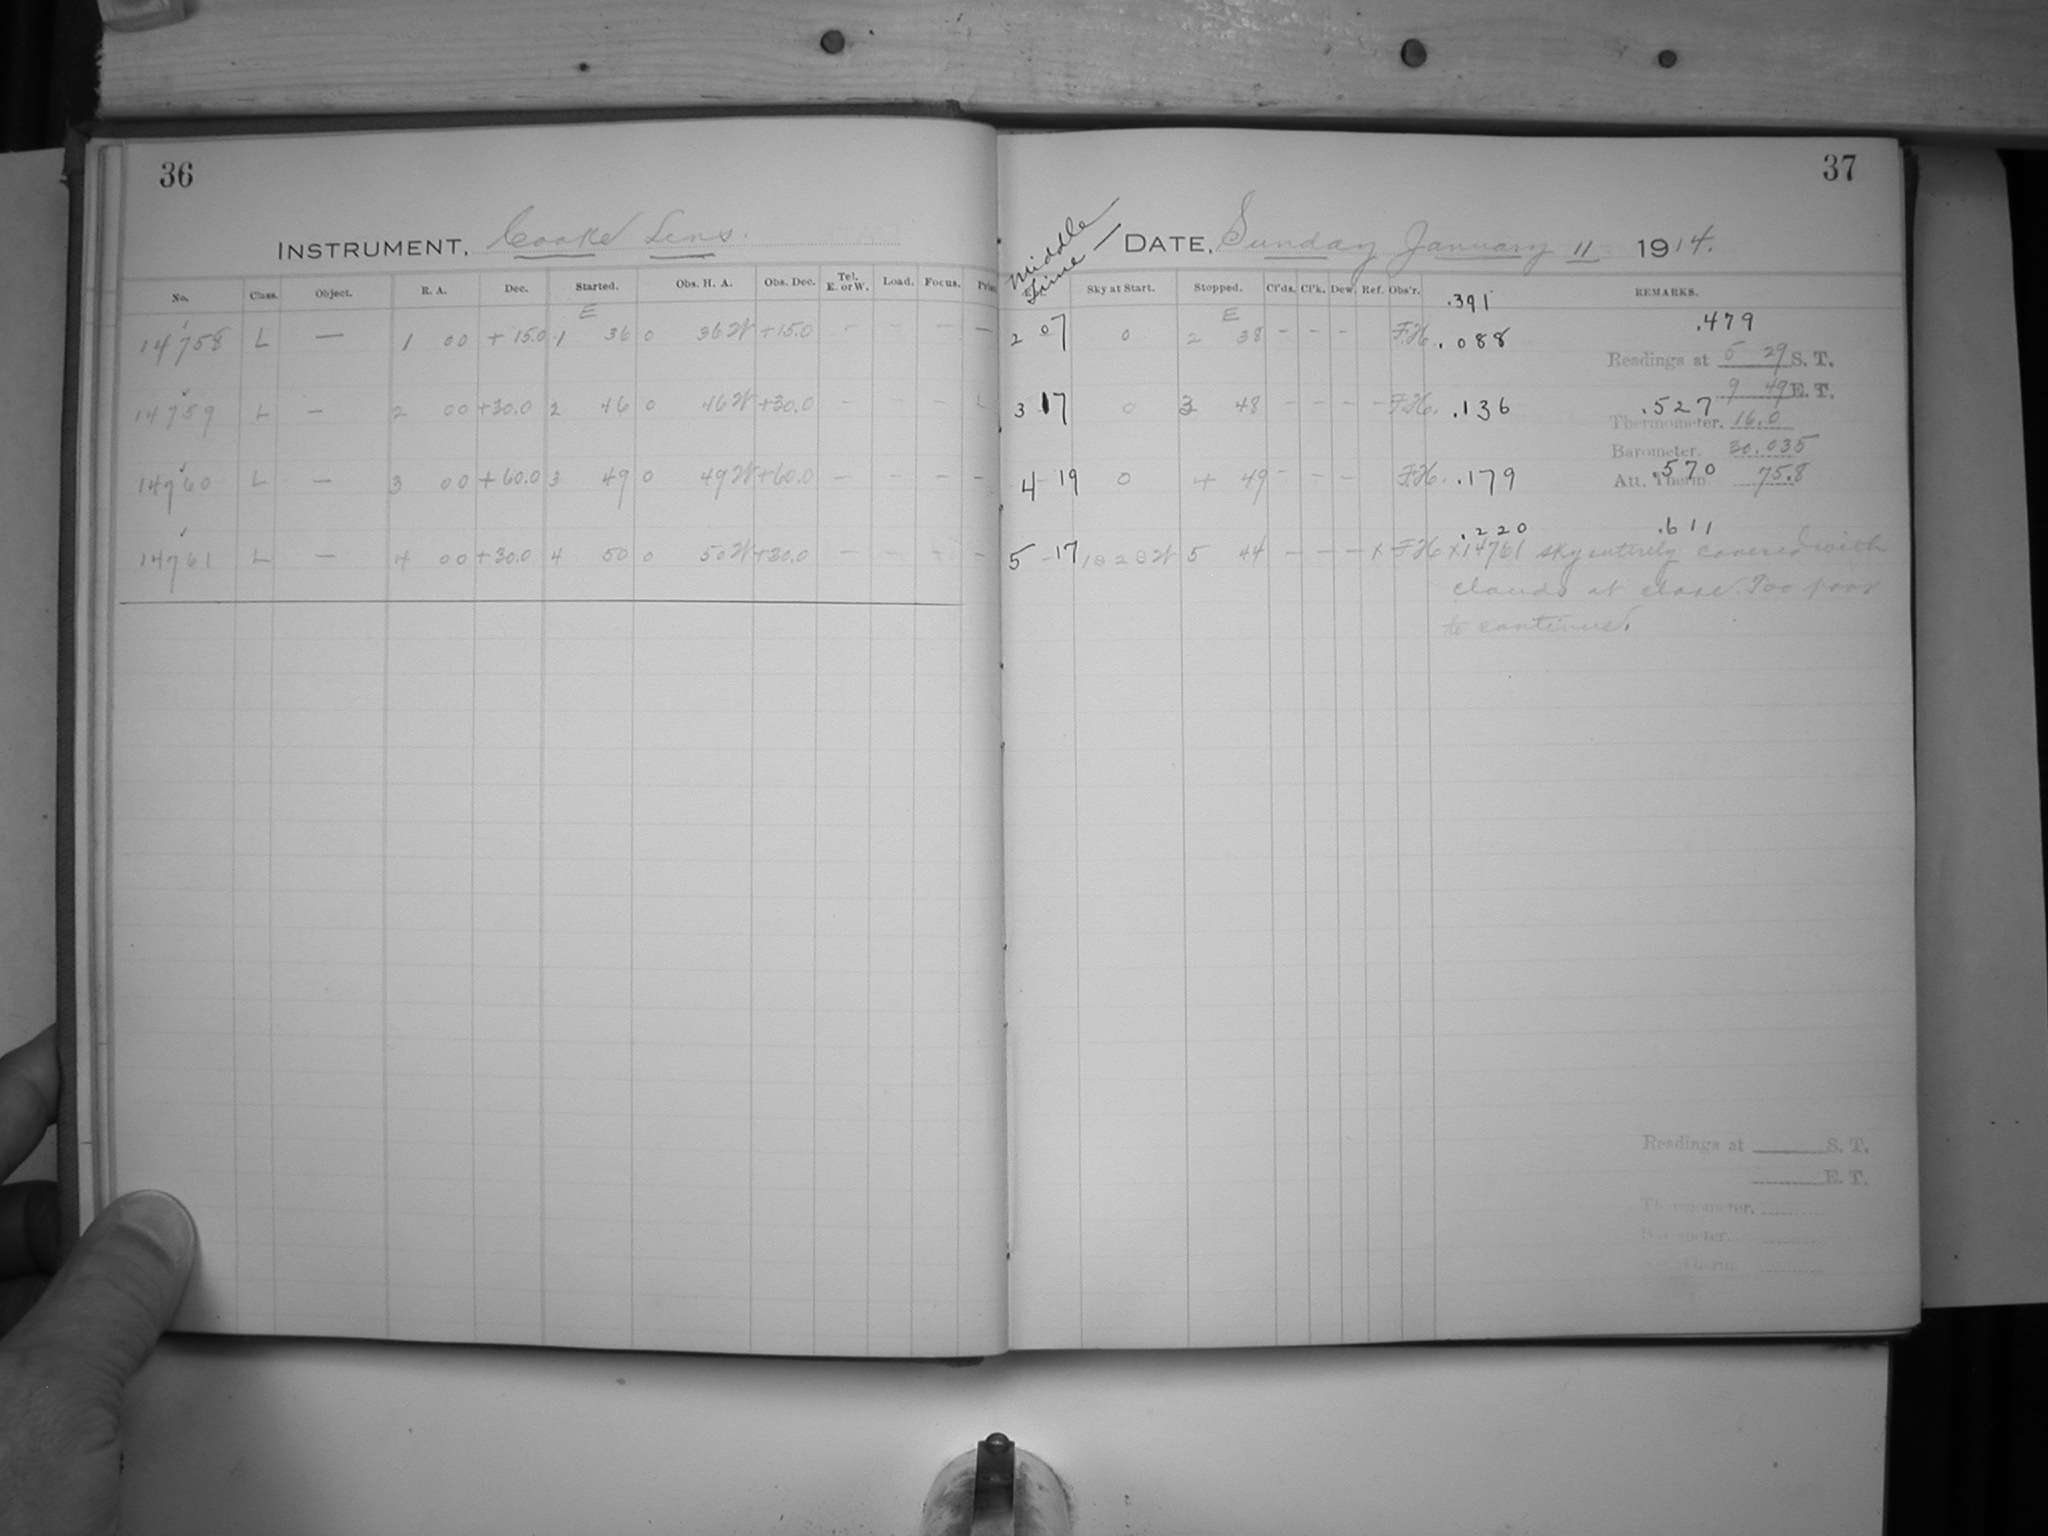 36
INSTRUMENT, Cooke Lens.
No. Class. Object. R. A. Dec. Started. Obs. H. A. Obs. Dec. Tel. E. or W. Load. Focus.
E
14758 L — 1 00 +15.0 1 36 0 36 W +15.0 - - - —
14759 L — 2 00 +30.0 2 46 0 46 W +30.0 - - -
14760 L — 3 00 +60.0 3 49 0 49 W +60.0 - - - -
14761 L — 4 00 +30.0 4 50 0 50 W +30.0 - - - -
37
Middle Time
DATE, Sunday January 11 1914.
Sky at Start. Stopped. Cl'ds. Cl'k. Dew. Ref. Obs'r. REMARKS.
.391
E
2 07 0 2 38 - - - F.H. .088 .479
Readings at 5 29 S. T.
9 49 E. T.
3 17 0 3 48 - - - - F.H. .136 .527
Thermometer. 16.0
Barometer. 30.035
4 19 0 4 49 - - - F.H. .179 .570
Att. Therm 75.8
.220 .611
5 17 5 44 - - - x F.H. x14761 sky entirely covered with
clouds at close. Too poor
to continue.
Readings at S. T.
E. T.
Thermometer.
Barometer.
Therm.